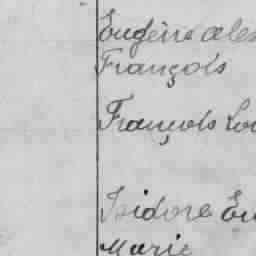 Eugène ales
François
François Lou
Isidore Eu
Marie